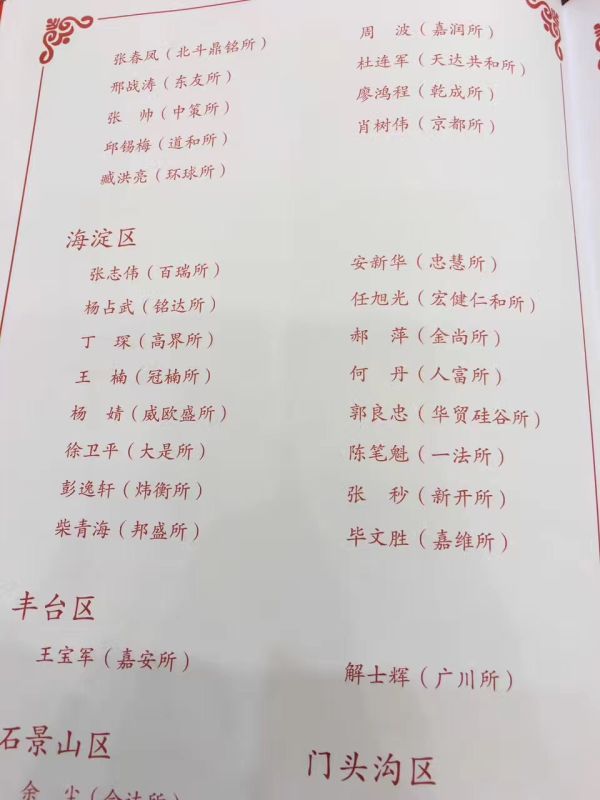 张春凤（北斗鼎铭所）
周　波（嘉润所）
邢战涛（东友所）
杜连军（天达共和所）
张　帅（中策所）
廖鸿程（乾成所）
邱锡梅（道和所）
肖树伟（京都所）
臧洪亮（环球所）
海淀区
张志伟（百瑞所）
安新华（忠慧所）
杨占武（铭达所）
任旭光（宏健仁和所）
丁　琛（高界所）
郝　萍（金尚所）
王　楠（冠楠所）
何　丹（人富所）
杨　婧（威欧盛所）
郭良忠（华贸硅谷所）
徐卫平（大是所）
陈笔魁（一法所）
彭逸轩（炜衡所）
张　秒（新开所）
柴青海（邦盛所）
毕文胜（嘉维所）
丰台区
王宝军（嘉安所）
解士辉（广川所）
石景山区
门头沟区
余　尘